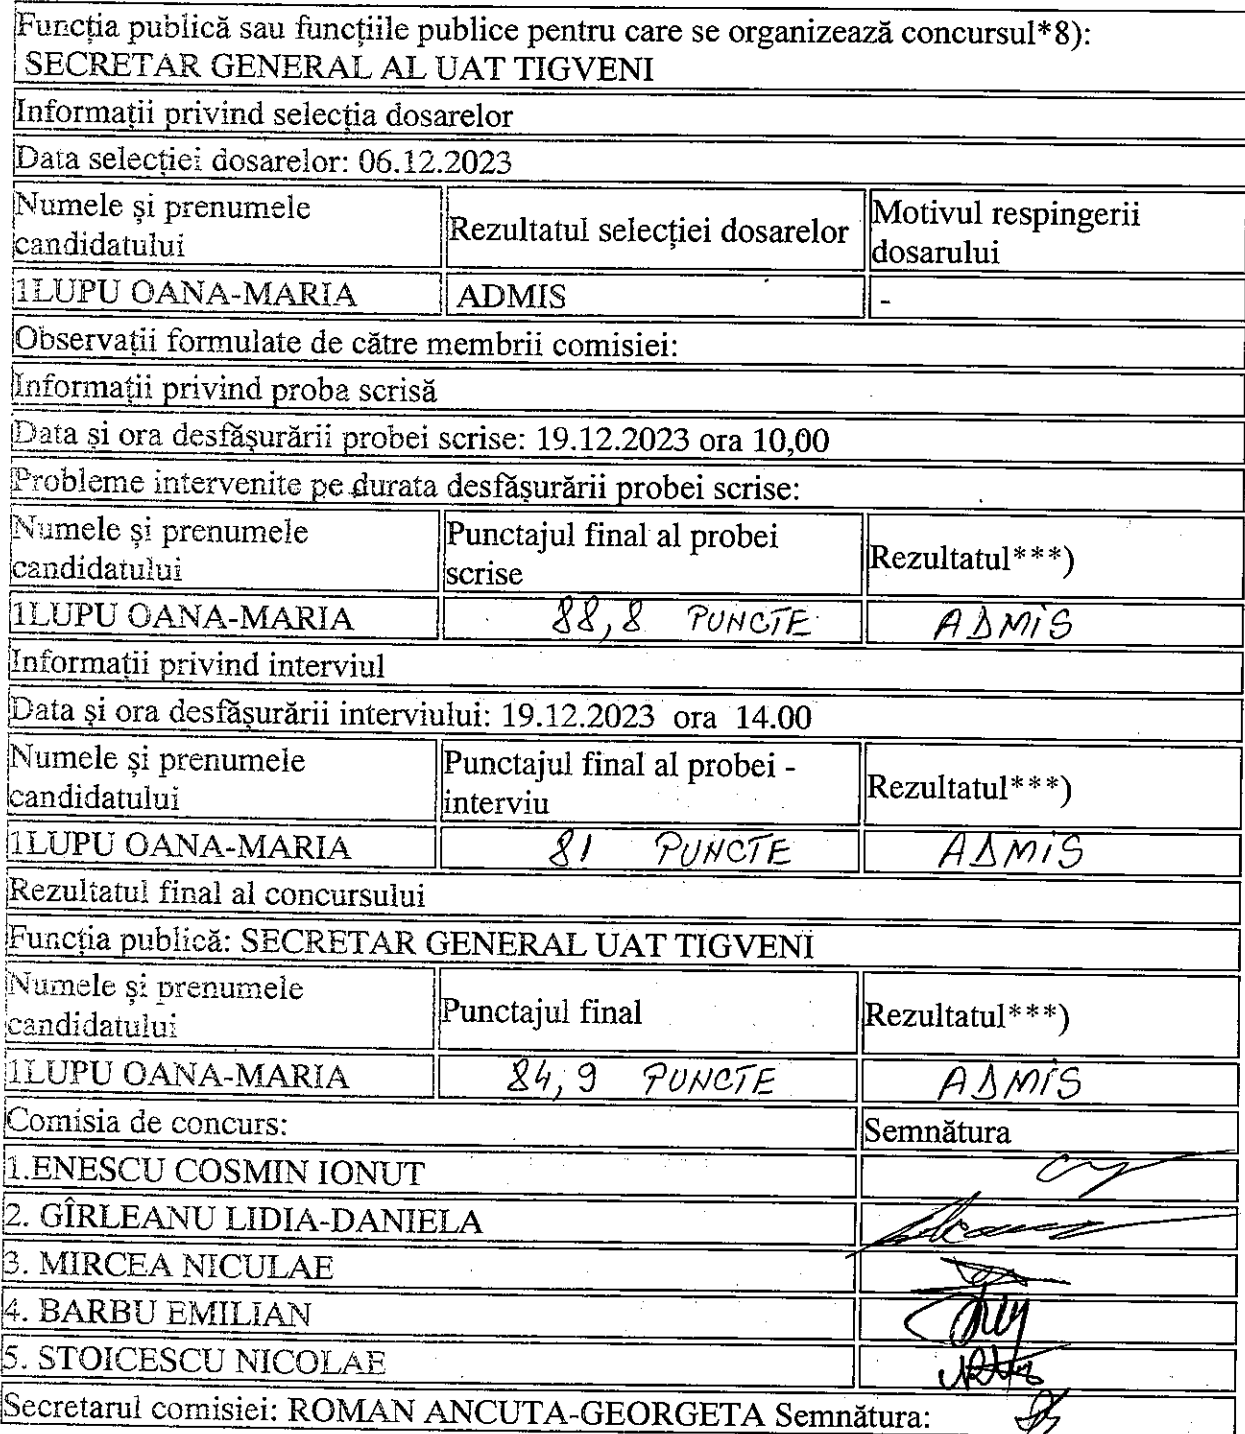 Funcția publică sau funcțiile publice pentru care se organizează concursul*8):
SECRETAR GENERAL AL UAT TIGVENI
Informații privind selecția dosarelor
Data selecției dosarelor: 06.12.2023
Numele și prenumele candidatului Rezultatul selecției dosarelor Motivul respingerii dosarului
1LUPU OANA-MARIA ADMIS -
Observații formulate de către membrii comisiei:
Informații privind proba scrisă
Data și ora desfășurării probei scrise: 19.12.2023 ora 10,00
Probleme intervenite pe durata desfășurării probei scrise:
Numele și prenumele candidatului Punctajul final al probei scrise Rezultatul***)
1LUPU OANA-MARIA 88,8 PUNCTE ADMiS
Informații privind interviul
Data și ora desfășurării interviului: 19.12.2023 ora 14.00
Numele și prenumele candidatului Punctajul final al probei - interviu Rezultatul***)
1LUPU OANA-MARIA 81 PUNCTE ADMiS
Rezultatul final al concursului
Funcția publică: SECRETAR GENERAL UAT TIGVENI
Numele și prenumele candidatului Punctajul final Rezultatul***)
1LUPU OANA-MARIA 84,9 PUNCTE ADMiS
Comisia de concurs: Semnătura
1.ENESCU COSMIN IONUT
2. GÎRLEANU LIDIA-DANIELA
3. MIRCEA NICULAE
4. BARBU EMILIAN
5. STOICESCU NICOLAE
Secretarul comisiei: ROMAN ANCUTA-GEORGETA Semnătura: